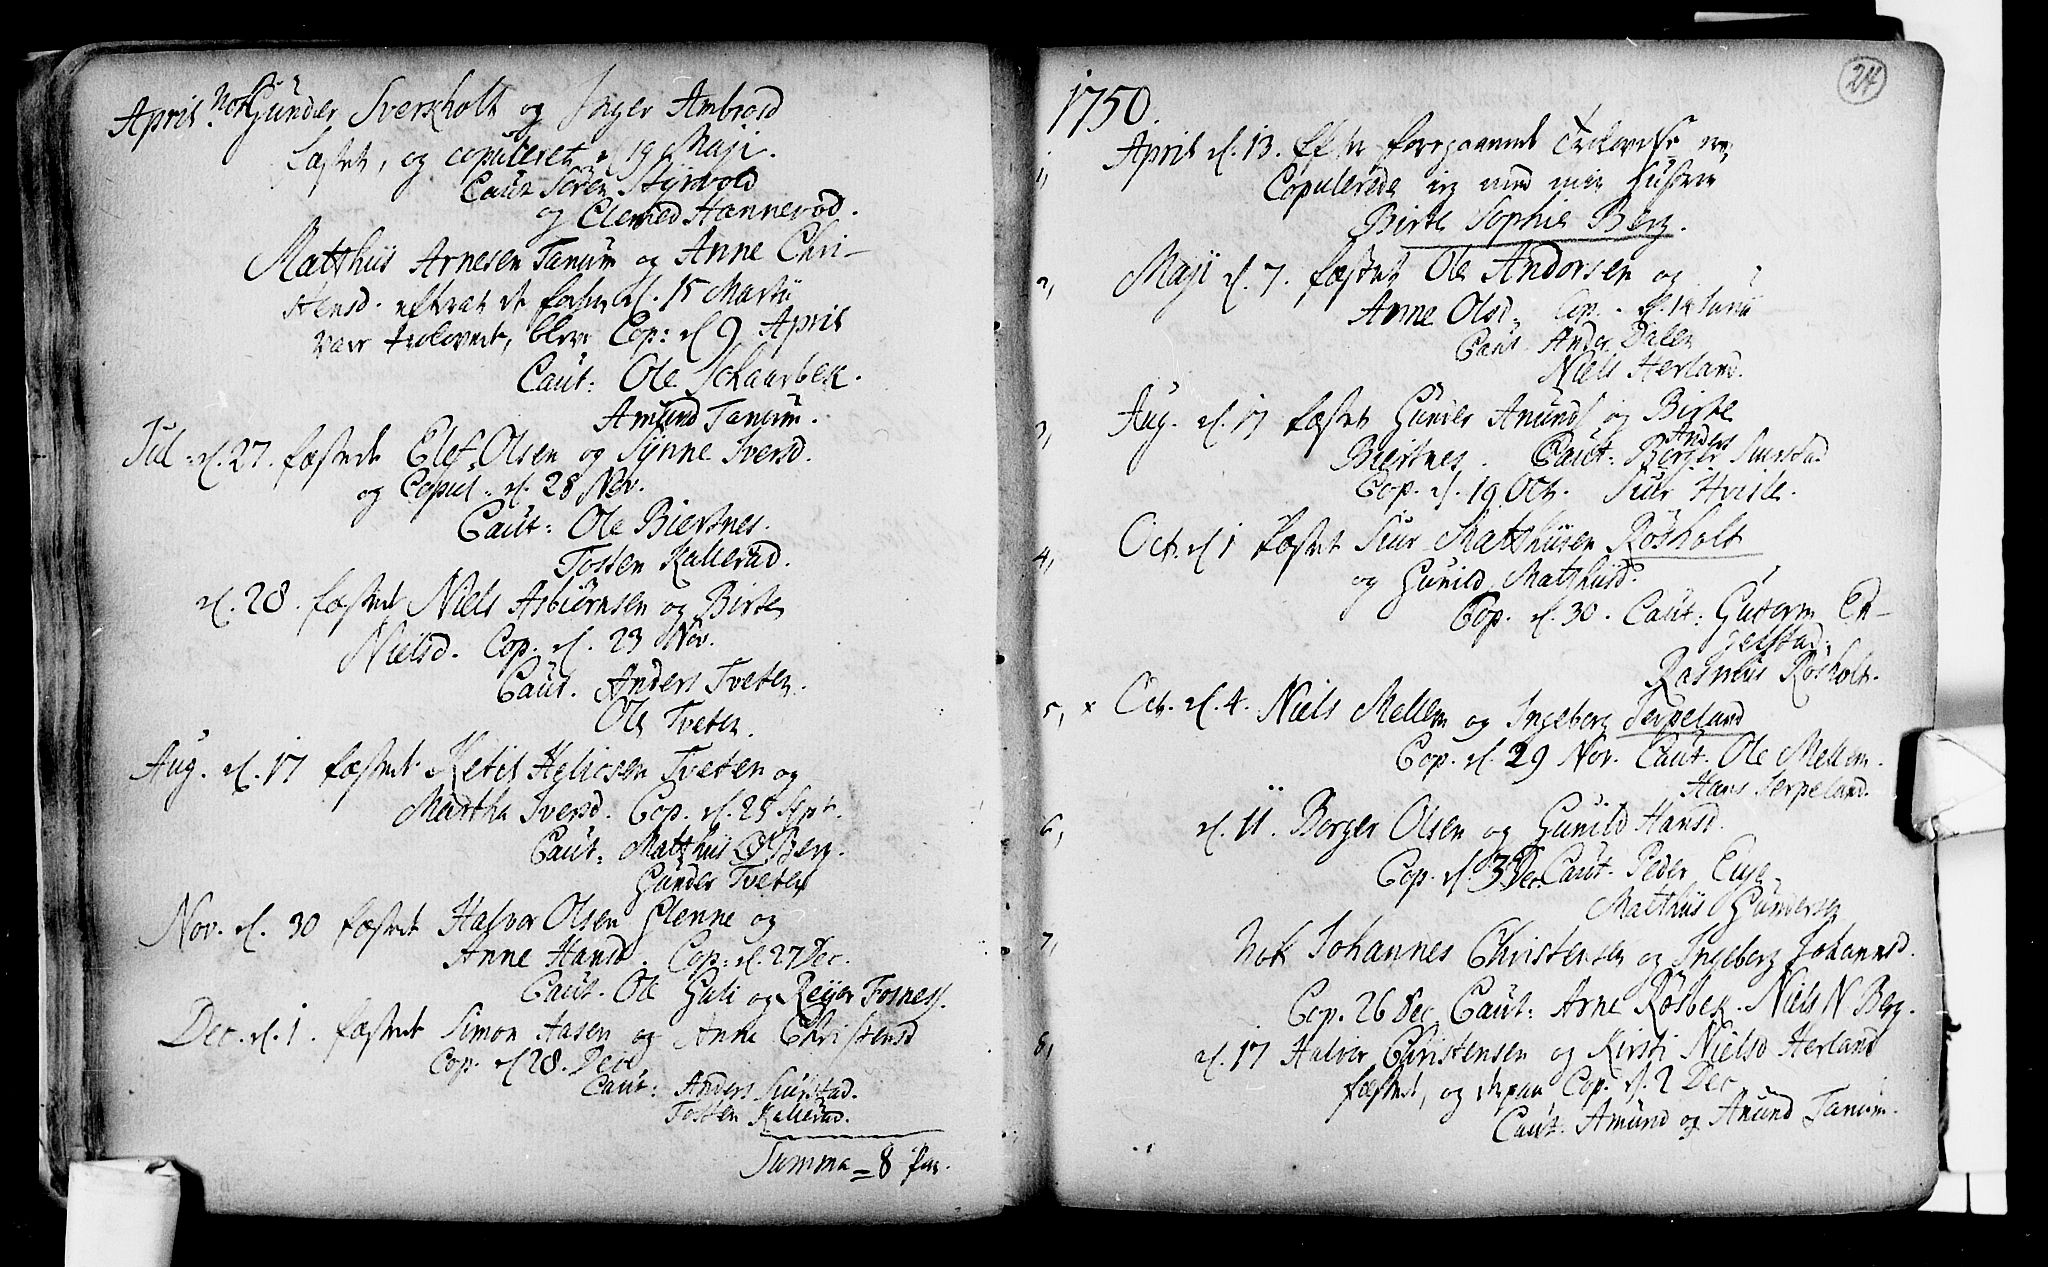 April. Nok Gunder Sverkholt og Inger Ambrosd
fæstet, og copuleret d 19 Maji.
Caut Sören Styrvold
og Clemed Hannevod.
Matthiis Arnesen Tanum og Anne Chri-
stensd. efterat de forhen d. 15 Martii
vare trolovede, bleve Cop: d 9 April
Caut: Ole Schaarbek.
Amund Tanum.
Jul. d. 27. fæstede Elef Olsen og Synne Iversd.
og Copul. d. 28 Nov.
Caut: Ole Biertnes.
Tosten Kallerud.
d. 28. fæstet Niels Asbiörnsen og Birte
Nielsd. Cop. d. 23 Nov.
Caut. Anders Tveten.
Ole Tveten.
Aug. d. 17 fæstet Ketil Helicsen Tveten og
Martha Iversd. Cop. d. 28 Sept.
Caut: Matthiis Berg.
Gunder Tveten
Nov. d. 30 fæstet Halvor Olsen Glenne og
Anne Hansd. Cop: d. 27 Dec.
Caut. Ole Guli og Reijer Fosness.
Dec. d. 1. fæstet Simon Aasen og Anne Christensd
Cop. d 28. Dec
Caut: Anders Suurstad.
Tosten Kallerud.
Summa = 8 par.
24
1750.
1, April d. 13. Efter foregaaende Trolovelse
Copulerede jeg med min Hustrue
Birte Sophie Berg.
2, Maji d. 7. fæstet Ole Andorsen og
Anne Olsd. Cop. d. 14 Junii
Caut. Andor Dalen
Niels Herland.
3, Aug. d. 17 fæstet Gunder Anunds og Birte
Anders
Biertnes. Caut: Borger Suurstad
Cop. d. 19 Oct. Siur Hvisle.
4, Oct. d 1 fæstet Siur Matthiisen Rösholt
og Gunild Matthiisd.
Cop. d. 30. Caut: Gutorm En-
gelstad.
Rasmus Rösholt.
5, x Oct. d. 4. Niels Mellem og Ingeborg Serpeland
Cop. d. 29 Nov. Caut. Ole Mellem.
Hans Serpeland.
6, d. 11. Borger Olsen og Gunild Hansd.
Cop. d. 3 Dec. Caut. Peder Euje
Matthiis Gundersen
7, Nok Johannes Christensen og Ingeborg Johannsd.
Cop. 26 Dec Caut: Arne Rösbek. Niels N Berg.
8, d. 17 Halvor Christensen og Kirsti Nielsd Herland
fæstet, og derpaa Cop. d. 2 Dec
Caut. Amund og Anund Tanum.